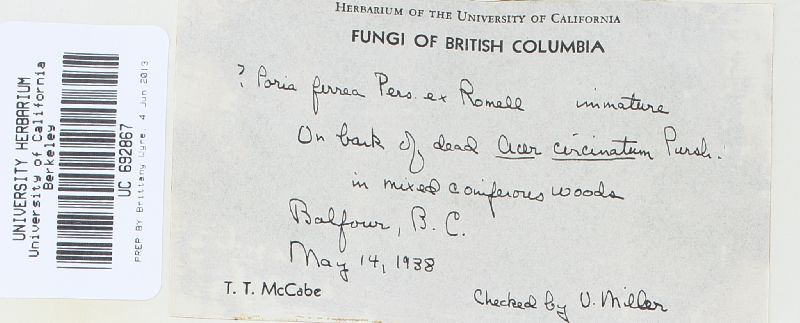 UNIVERSITY HERBARIUM
University of California
Berkeley
UC 692867
PREP BY Brittany Wyre, 4 Jun 2013
HERBARIUM OF THE UNIVERSITY OF CALIFORNIA
FUNGI OF BRITISH COLUMBIA
? Poria ferrea Pers. ex Romell immature
On bark of dead Acer circinatum Pursh.
in mixed coniferous woods
Balfour, B. C.
May 14, 1938
T. T. McCabe
Checked by V. Miller